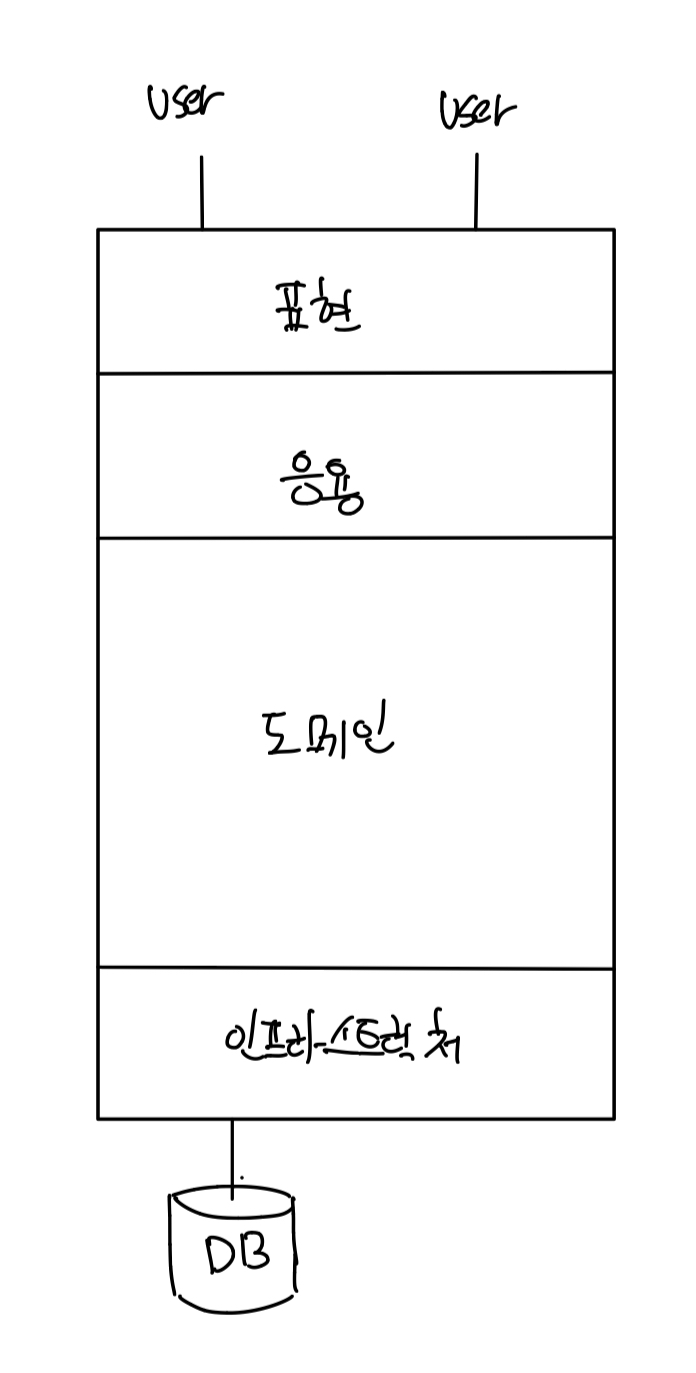 User User
표현
응용
도메인
인프라스트럭처
DB